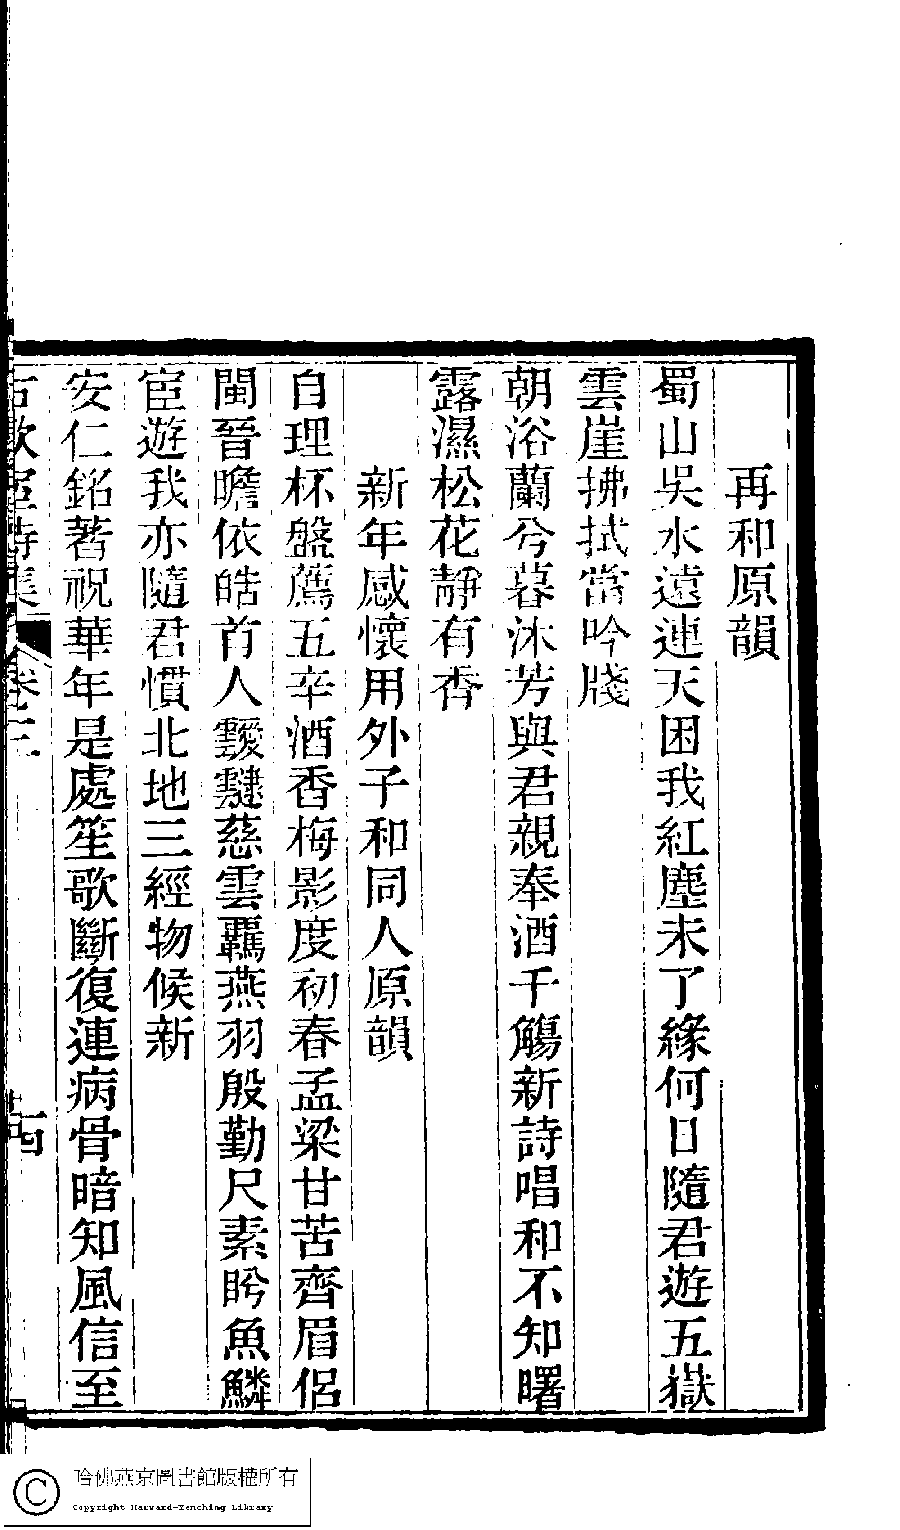 再和原韻
蜀山吳水遠連天困我紅塵未了緣何日隨君遊五嶽
雲崖拂拭當吟牋
朝浴蘭兮暮沐芳與君親奉酒千觴新詩唱和不知曙
露濕松花靜有香
新年感懷用外子和同人原韻
自理杯盤薦五辛酒香梅影度初春孟梁甘苦齊眉侶
閩晉瞻依皓首人靉靆慈雲羈燕羽殷勤尺素盻魚鱗
宦遊我亦隨君慣北地三經物候新
安仁銘著祝華年是處笙歌斷復連病骨暗知風信至
古歡室詩集 卷三
哈佛燕京圖書館版權所有
Copyright Harvard-Yenching Library